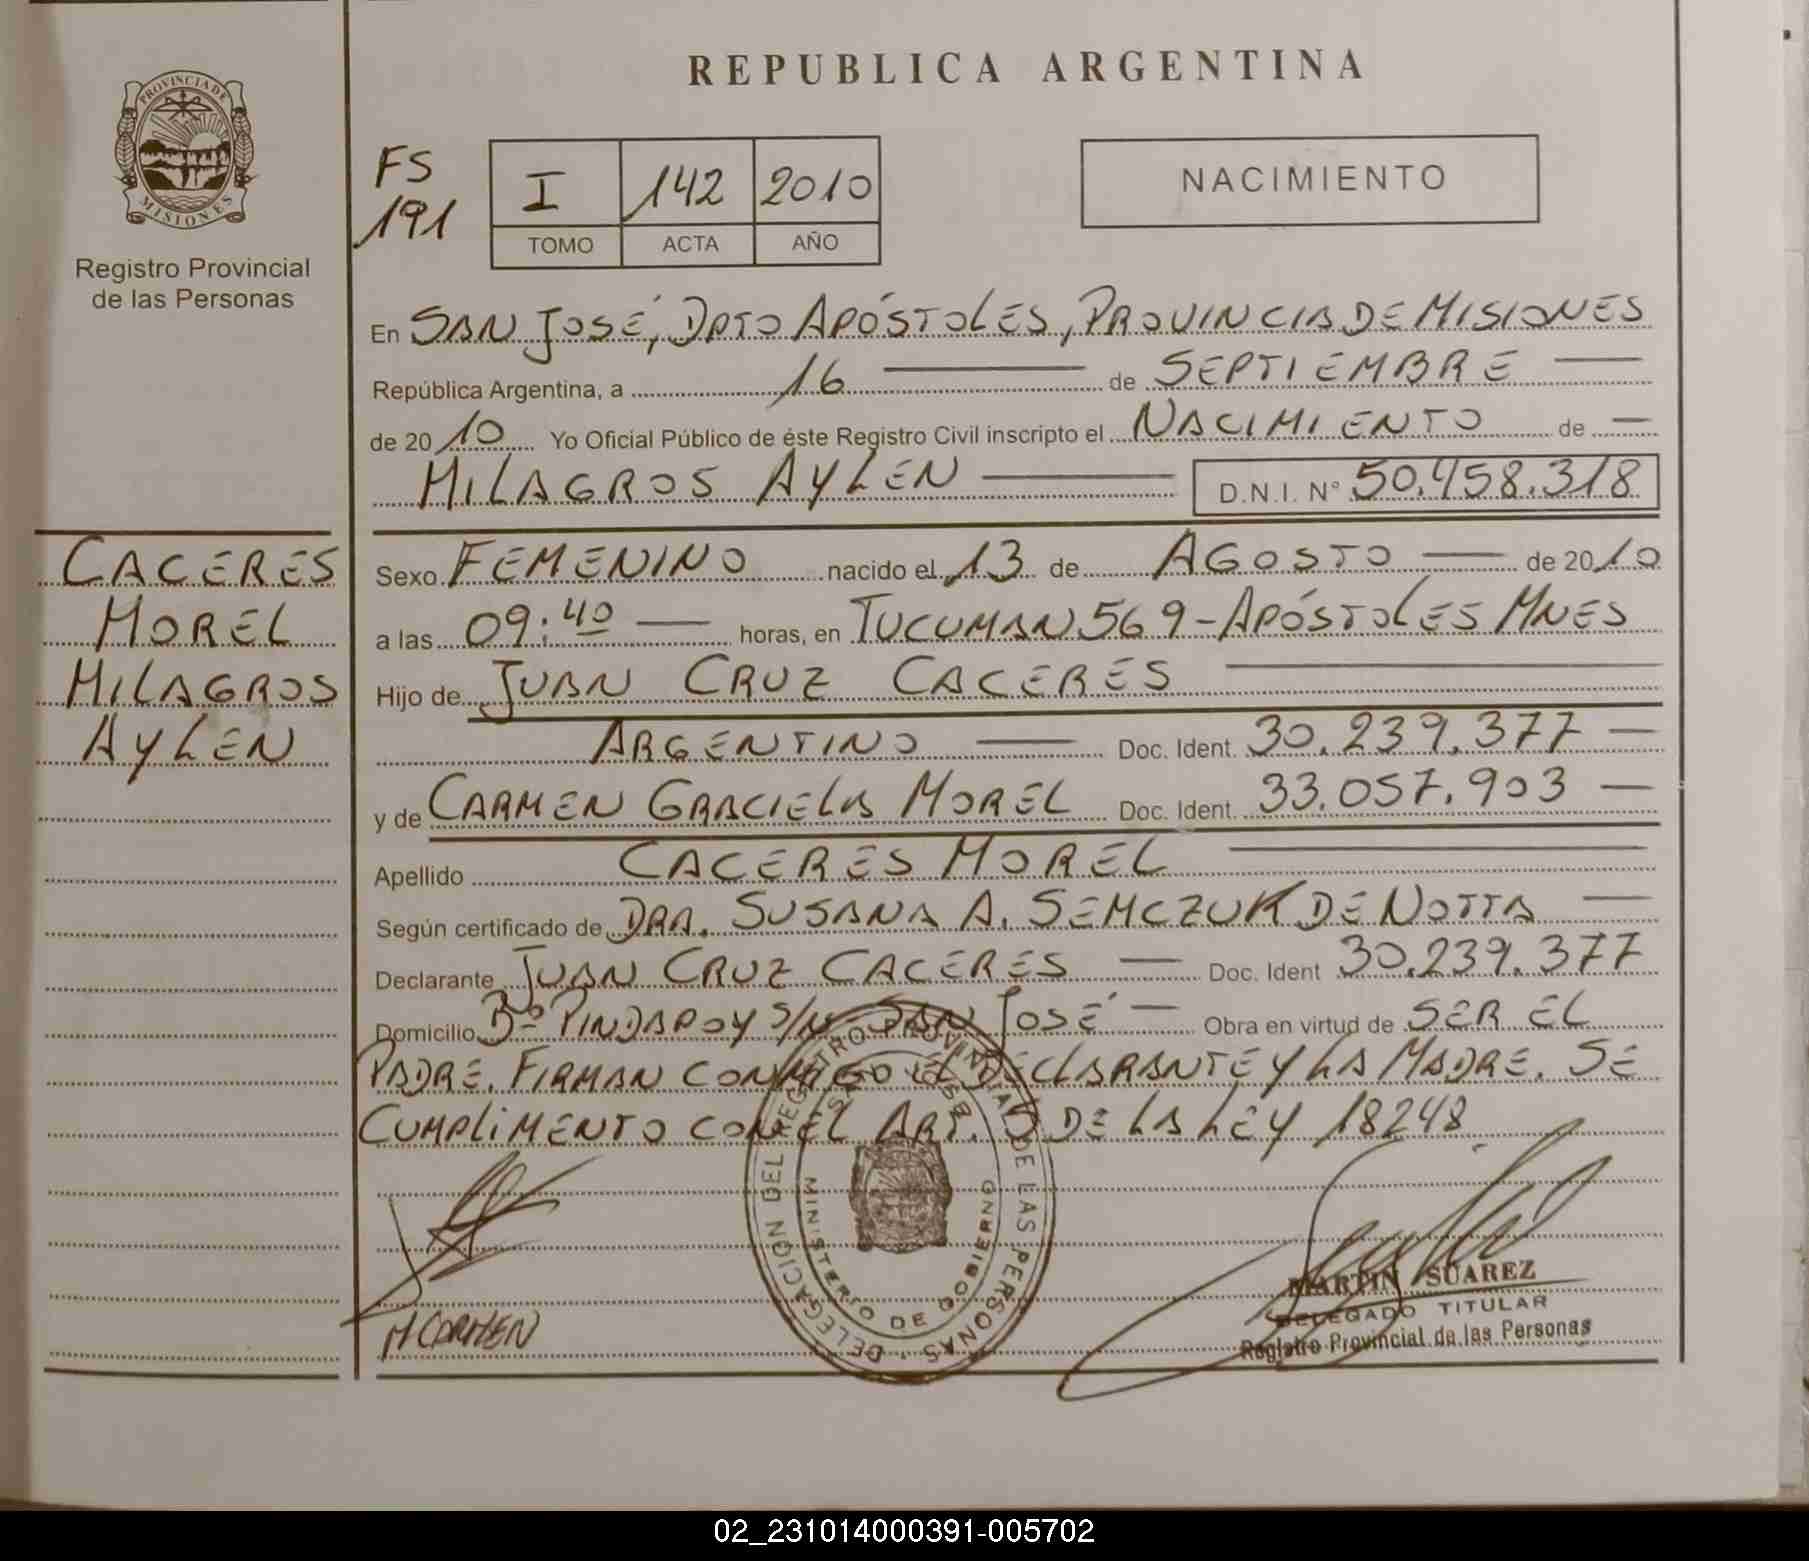 REPUBLICA ARGENTINA
PROVINCIA DE
MISIONES
Registro Provincial
de las Personas
FS
191
I 142 2010
TOMO ACTA AÑO
NACIMIENTO
En SAN JOSÉ, DPTO APÓSTOLES, PROVINCIA DE MISIONES
República Argentina, a 16 de SEPTIEMBRE
de 2010 Yo Oficial Público de éste Registro Civil inscripto el NACIMIENTO de
MILAGROS AYLEN D.N.I. Nº 50.458.318
CACERES
MOREL
MILAGROS
AYLEN
Sexo FEMENINO nacido el 13 de AGOSTO de 2010
a las 09:40 horas, en TUCUMAN 569 - APÓSTOLES MNES
Hijo de JUAN CRUZ CACERES
ARGENTINO Doc. Ident. 30.239.377
y de CARMEN GRACIELA MOREL Doc. Ident. 33.057.903
Apellido CACERES MOREL
Según certificado de DRA. SUSANA A. SEMCZUK DE NOTTA
Declarante JUAN CRUZ CACERES Doc. Ident 30.239.377
Domicilio Bº PINDAPOY S/N SAN JOSÉ Obra en virtud de SER EL
PADRE. FIRMAN CONMIGO EL DECLARANTE Y LA MADRE. SE
CUMPLIMENTO CON EL ART. 5 DE LA LEY 18248.
DELEGACION DEL REGISTRO PROVINCIAL DE LAS PERSONAS
SAN JOSE
MINISTERIO DE GOBIERNO
M CARMEN
MARTIN SUAREZ
DELEGADO TITULAR
Registro Provincial de las Personas
02_231014000391-005702